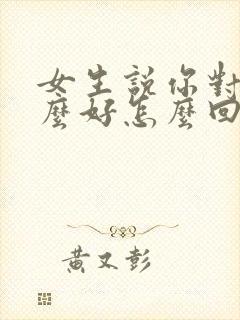 女生說你對
麼好怎麼回
黃又彭